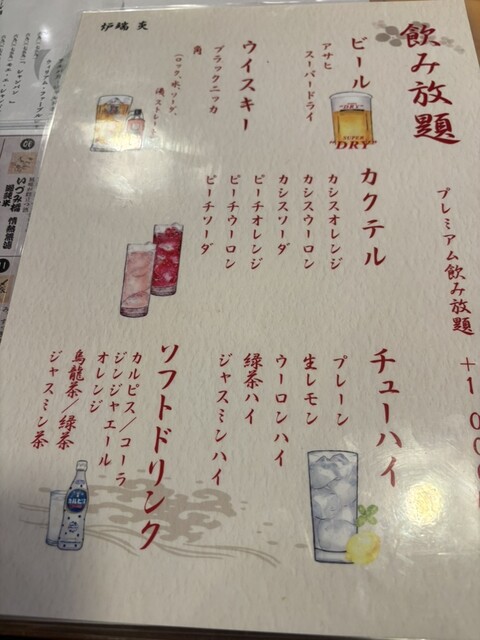 飲み放題
プレミアム飲み放題
ビール
アサヒ
スーパードライ
SUPER
DRY
ウイスキー
ブラックニッカ
角
(ロック、水、ソーダ、
炉端 炙
カクテル
カシスオレンジ
カシスウーロン
カシスソーダ
ピーチオレンジ
ピーチウーロン
ピーチソーダ
チューハイ
プレーン
生レモン
ウーロンハイ
緑茶ハイ
ジャスミンハイ
ソフトドリンク
カルピス/コーラ
ジンジャエール
オレンジ
烏龍茶/緑茶
ジャスミン茶